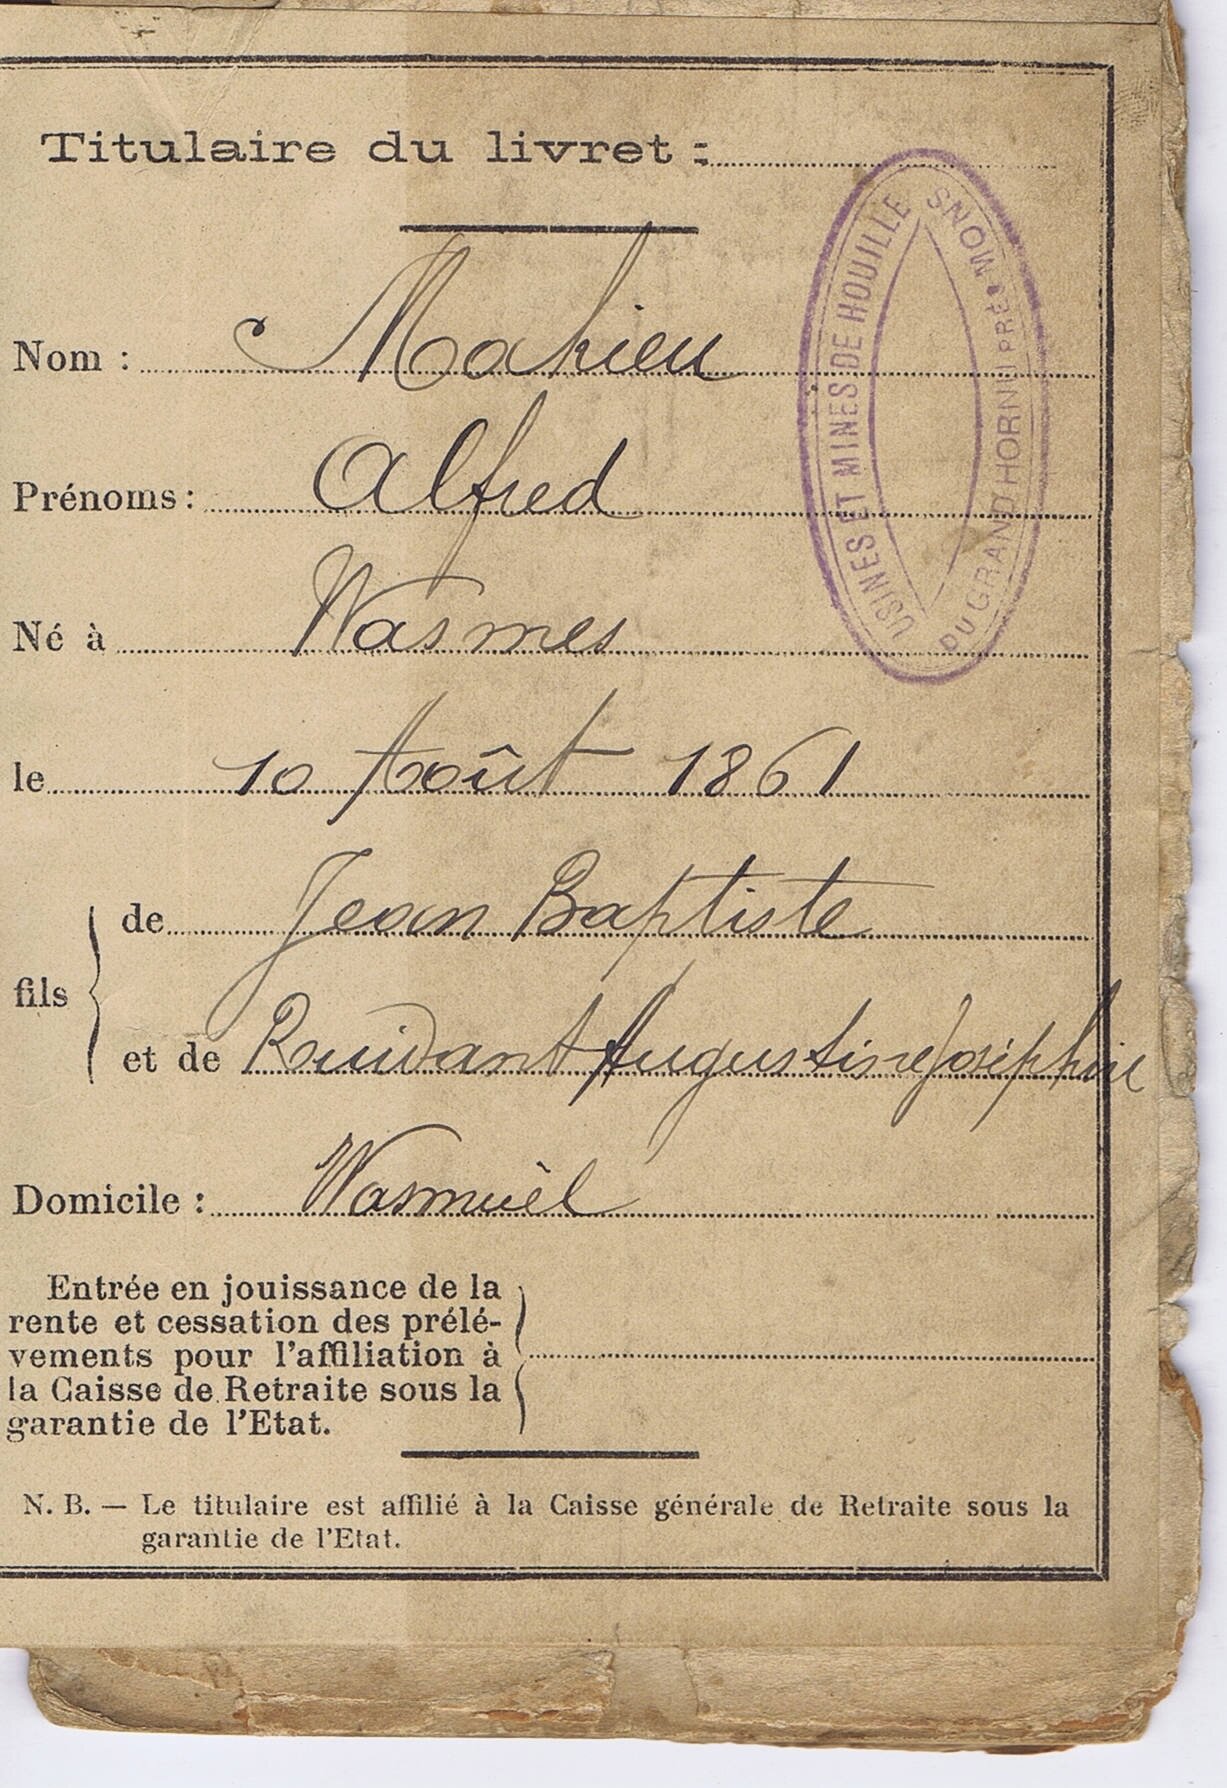 Titulaire du livret :
USINES ET MINES DE HOUILLE
DU GRAND HORNU PRÈS MONS
Nom : Mahieu
Prénoms : Alfred
Né à Wasmes
le 10 Août 1861
fils
de Jean Baptiste
et de Ruidant Augustine Joséphine
Domicile : Wasmuël
Entrée en jouissance de la
rente et cessation des prélé-
vements pour l'affiliation à
la Caisse de Retraite sous la
garantie de l'Etat.
N. B. — Le titulaire est affilié à la Caisse générale de Retraite sous la
garantie de l'Etat.